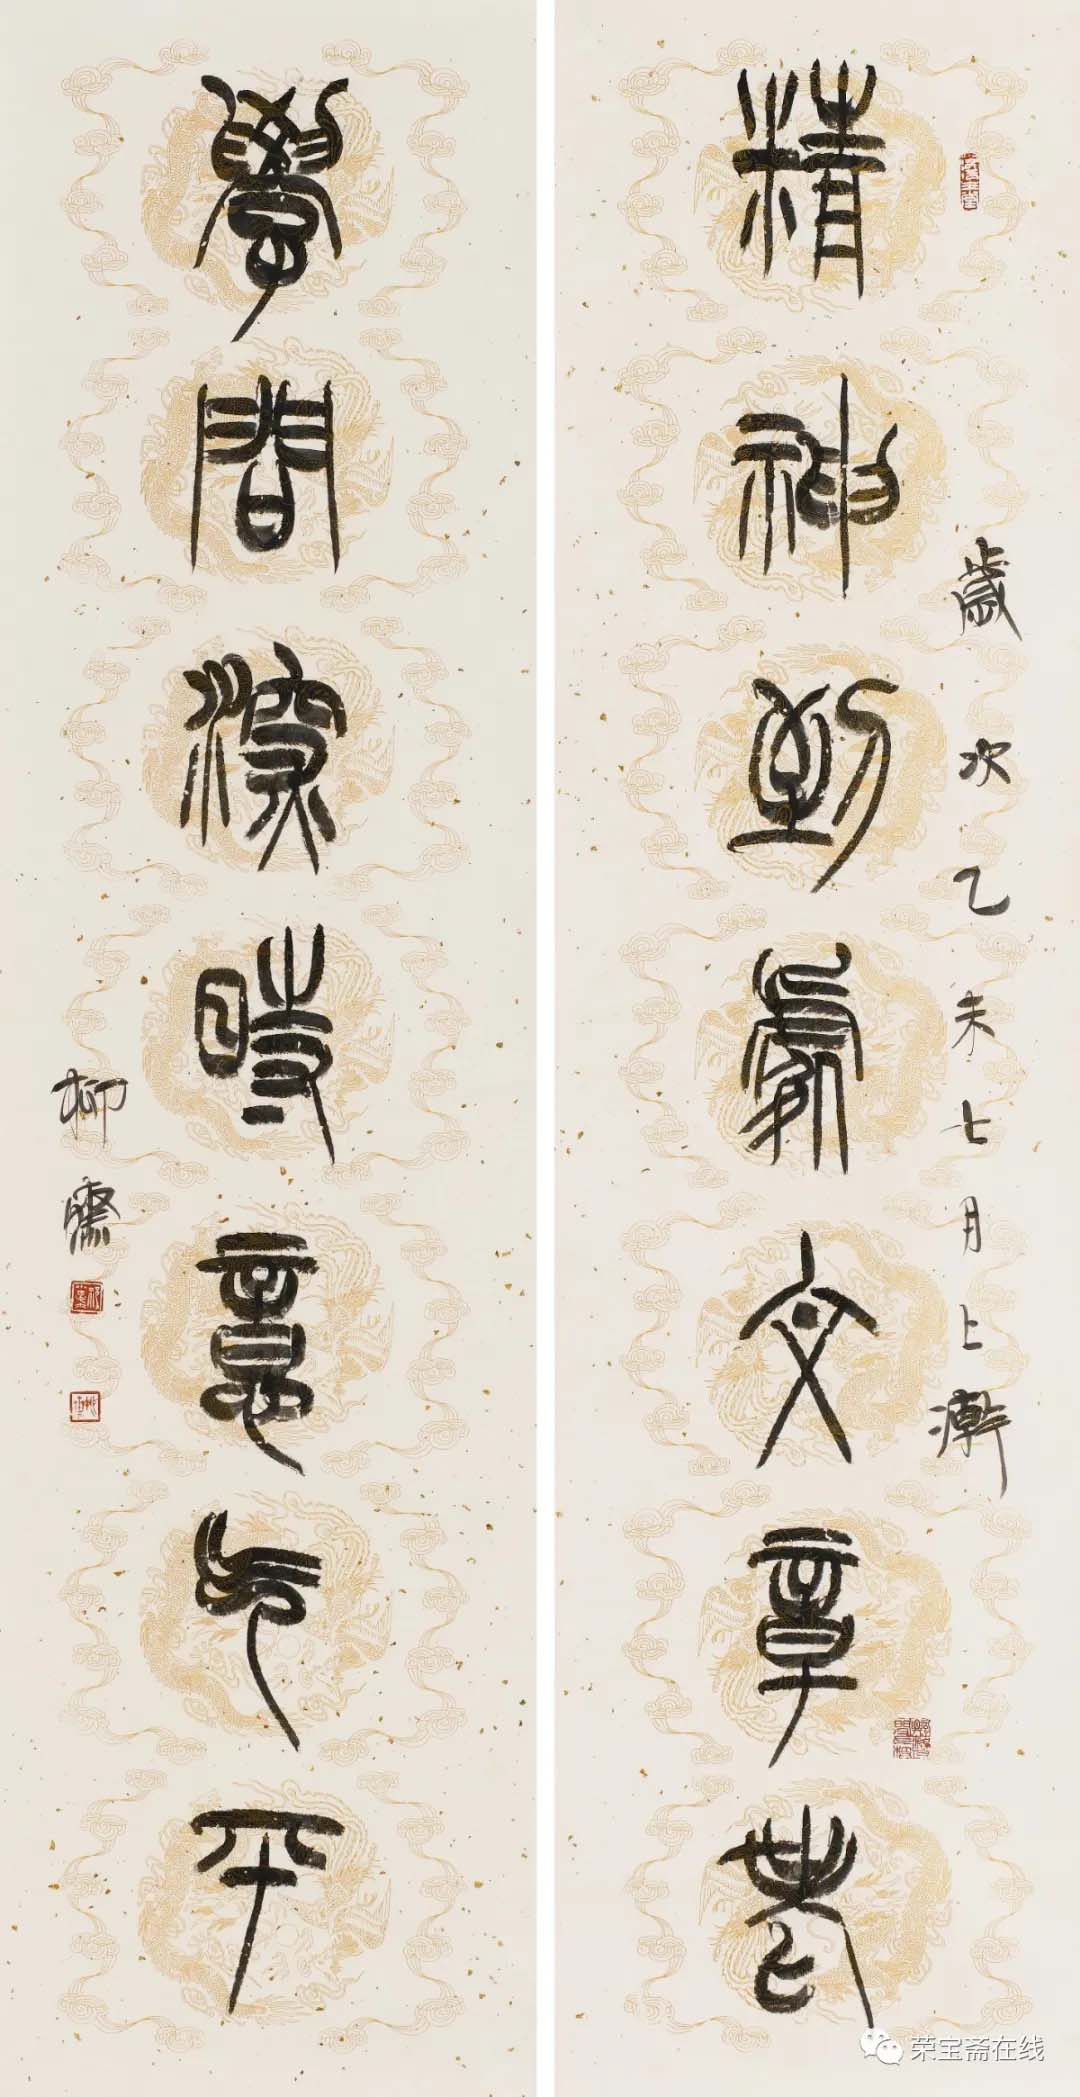 精神到處文章老
歲次乙未七月上澣
學問深時意气平
荣宝斋在线